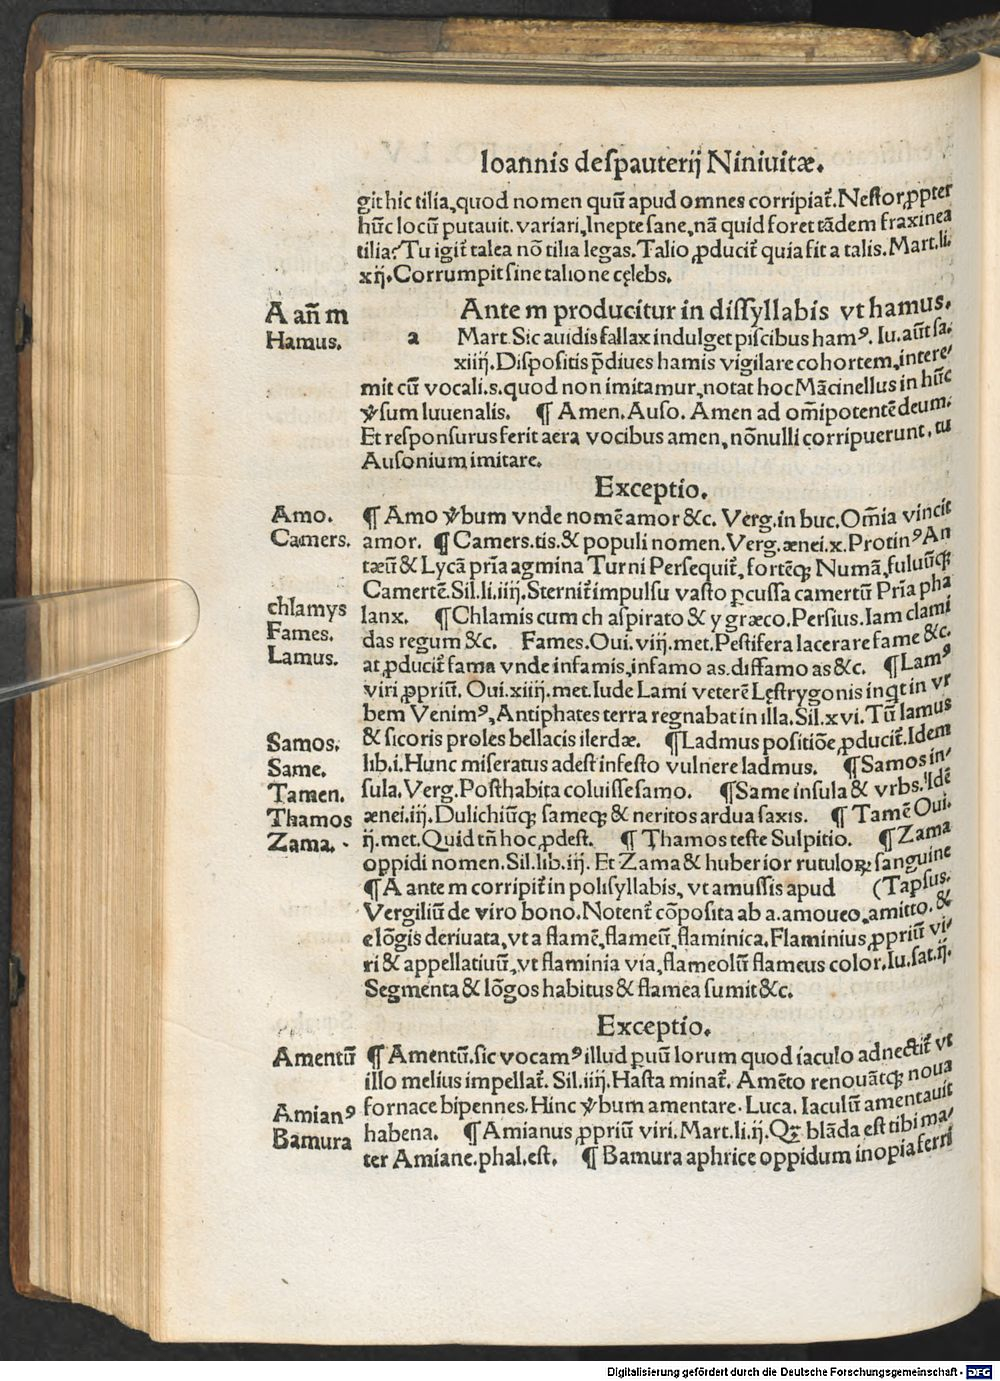 Ioannis despauterij Niniuitæ.
git hic tilia, quod nomen quū apud omnes corripiat᷑. Nestor ꝓpter
hūc locū putauit. variari, Inepte sane, nā quid foret tādem fraxinea
tilia? Tu igit᷑ talea nō tilia legas. Talio ꝓducit᷑ quia fit a talis. Mart. li.
xij. Corrumpit sine talione cęlebs.
A añ m
Ante m producitur in dissyllabis vt hamus.
Hamus.
a Mart. Sic auidis fallax indulget piscibus hamꝰ. Iu. aūt sa.
xiiij. Dispositis p̄diues hamis vigilare cohortem, intere/
mit cū vocali. s. quod non imitamur, notat hoc Mācinellus in hūc
v̓sum Iuuenalis. ¶ Amen. Auso. Amen ad om̄ipotentē deum.
Et responsurus ferit aera vocibus amen, nōnulli corripuerunt, tu
Ausonium imitare.
Exceptio.
Amo.
¶ Amo v̓bum vnde nomē amor &c. Verg. in buc. Om̄ia vincit
Camers.
amor. ¶ Camers. tis. & populi nomen. Verg. ænei. x. Protinꝰ An
tæū & Lycā pr̄ia agmina Turni Persequit᷑, fortēqꝫ Numā, fuluūqꝫ
Camertē. Sil. li. iiij. Sternit᷑ impulsu vasto ꝑcussa camertū Pr̄ia pha
chlamys
lanx. ¶ Chlamis cum ch aspirato & y græco. Persius. Iam clami
Fames.
das regum &c. Fames. Oui. viij. met. Pestifera lacerare fame &c.
Lamus.
at ꝓducit᷑ fama vnde infamis, infamo as. diffamo as &c. ¶ Lamꝰ
viri ꝓpriū. Oui. xiiij. met. Iude Lami veterē Lęstrygonis inqt in vr
bem Venimꝰ, Antiphates terra regnabat in illa. Sil. xvi. Tū lamus
Samos.
& sicoris proles bellacis ilerdæ. ¶ Ladmus positiōe ꝓducit᷑. Idem
Same.
lib. i. Hunc miseratus adest infesto vulnere ladmus. ¶ Samos in/
Tamen.
sula. Verg. Posthabita coluisse samo. ¶ Same insula & vrbs. Idē
Thamos
ænei. iij. Dulichiūqꝫ sameqꝫ & neritos ardua saxis. ¶ Tamē Oui.
Zama.
ij. met. Quid tn̄ hoc ꝓdest. ¶ Thamos teste Sulpitio. ¶ Zama
oppidi nomen. Sil. lib. iij. Et Zama & huberior rutuloꝝ sanguine
¶ A ante m corripit᷑ in polisyllabis, vt amussis apud (Tapsus.
Vergiliū de viro bono. Notent᷑ cōposita ab a. amoueo, amitto. &
e lōgis deriuata, vt a flamē, flameū, flaminica. Flaminius ꝓpriū vi/
ri & appellatiuū, vt flaminia via, flameolū flameus color. Iu. sat. ij.
Segmenta & lōgos habitus & flamea sumit &c.
Exceptio.
Amentū
¶ Amentū. sic vocamꝰ illud ꝑuū lorum quod iaculo adnectit᷑ vt
illo melius impellat᷑. Sil. iiij. Hasta minat᷑. Amēto renouātqꝫ noua
Amianꝰ
fornace bipennes. Hinc v̓bum amentare. Luca. Iaculū amentauit
Bamura
habena. ¶ Amianus ꝓpriū viri. Mart. li. ij. Qꝫ blāda est tibi ma/
ter Amiane. phal. est. ¶ Bamura aphrice oppidum inopia ferri
Digitalisierung gefördert durch die Deutsche Forschungsgemeinschaft - DFG